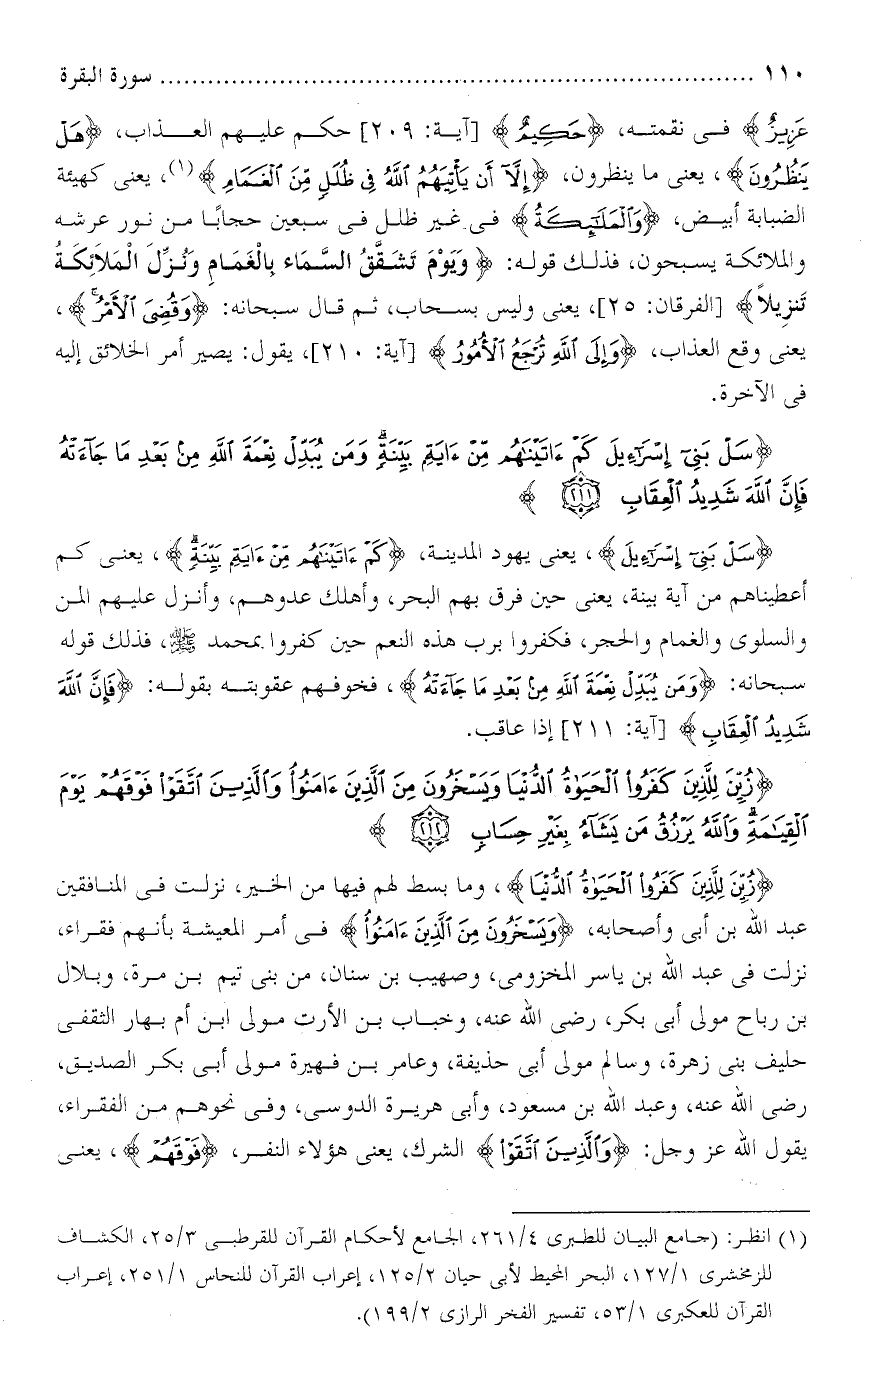 ١١٠ ........................................................................... سورة البقرة
عَزِيزٌ﴾ فى نقمته، ﴿حَكِيمٌ﴾ [آية: ٢٠٩] حكم عليهم العذاب، ﴿هَلْ
يَنظُرُونَ﴾، يعنى ما ينظرون، ﴿إِلَّآ أَن يَأْتِيَهُمُ ٱللَّهُ فِى ظُلَلٍ مِّنَ ٱلْغَمَامِ﴾(١)، يعنى كهيئة
الضبابة أبيض، ﴿وَٱلْمَلَٰٓئِكَةُ﴾ فى غير ظلل فى سبعين حجابًا من نور عرشه
والملائكة يسبحون، فذلك قوله: ﴿وَيَوْمَ تَشَقَّقُ السَّمَاء بِالْغَمَامِ وَنُزِّلَ الْمَلَائِكَةُ
تَنزِيلاً﴾ [الفرقان: ٢٥]، يعنى وليس بسحاب، ثم قال سبحانه: ﴿وَقُضِىَ ٱلْأَمْرُ ۚ﴾،
يعنى وقع العذاب، ﴿وَإِلَى ٱللَّهِ تُرْجَعُ ٱلْأُمُورُ﴾ [آية: ٢١٠]، يقول: يصير أمر الخلائق إليه
فى الآخرة.
﴿سَلْ بَنِىٓ إِسْرَٰٓءِيلَ كَمْ ءَاتَيْنَٰهُم مِّنْ ءَايَةٍۭ بَيِّنَةٍ ۗ وَمَن يُبَدِّلْ نِعْمَةَ ٱللَّهِ مِنۢ بَعْدِ مَا جَآءَتْهُ
فَإِنَّ ٱللَّهَ شَدِيدُ ٱلْعِقَابِ ﴿٢١١﴾﴾
﴿سَلْ بَنِىٓ إِسْرَٰٓءِيلَ﴾، يعنى يهود المدينة، ﴿كَمْ ءَاتَيْنَٰهُم مِّنْ ءَايَةٍۭ بَيِّنَةٍ ۗ﴾، يعنى كم
أعطيناهم من آية بينة، يعنى حين فرق بهم البحر، وأهلك عدوهم، وأنزل عليهم المن
والسلوى والغمام والحجر، فكفروا برب هذه النعم حين كفروا بمحمد ﷺ، فذلك قوله
سبحانه: ﴿وَمَن يُبَدِّلْ نِعْمَةَ ٱللَّهِ مِنۢ بَعْدِ مَا جَآءَتْهُ﴾، فخوفهم عقوبته بقوله: ﴿فَإِنَّ ٱللَّهَ
شَدِيدُ ٱلْعِقَابِ﴾ [آية: ٢١١] إذا عاقب.
﴿زُيِّنَ لِلَّذِينَ كَفَرُوا۟ ٱلْحَيَوٰةُ ٱلدُّنْيَا وَيَسْخَرُونَ مِنَ ٱلَّذِينَ ءَامَنُوا۟ ۘ وَٱلَّذِينَ ٱتَّقَوْا۟ فَوْقَهُمْ يَوْمَ
ٱلْقِيَٰمَةِ ۗ وَٱللَّهُ يَرْزُقُ مَن يَشَآءُ بِغَيْرِ حِسَابٍ ﴿٢١٢﴾﴾
﴿زُيِّنَ لِلَّذِينَ كَفَرُوا۟ ٱلْحَيَوٰةُ ٱلدُّنْيَا﴾، وما بسط لهم فيها من الخير، نزلت فى المنافقين
عبد الله بن أبى وأصحابه، ﴿وَيَسْخَرُونَ مِنَ ٱلَّذِينَ ءَامَنُوا۟ ۘ﴾ فى أمر المعيشة بأنهم فقراء،
نزلت فى عبد الله بن ياسر المخزومى، وصهيب بن سنان، من بنى تيم بن مرة، وبلال
بن رباح مولى أبى بكر، رضى الله عنه، وخباب بن الأرت مولى ابن أم بهار الثقفى
حليف بنى زهرة، وسالم مولى أبى حذيفة، وعامر بن فهيرة مولى أبى بكر الصديق،
رضى الله عنه، وعبد الله بن مسعود، وأبى هريرة الدوسى، وفى نحوهم من الفقراء،
يقول الله عز وجل: ﴿وَٱلَّذِينَ ٱتَّقَوْا۟﴾ الشرك، يعنى هؤلاء النفر، ﴿فَوْقَهُمْ﴾، يعنى
(١) انظر: (جامع البيان للطبرى ٢٦١/٤، الجامع لأحكام القرآن للقرطبى ٢٥/٣، الكشاف
للزمخشرى ١٢٧/١، البحر المحيط لأبى حيان ١٢٥/٢، إعراب القرآن للنحاس ٢٥١/١، إعراب
القرآن للعكبرى ٥٣/١، تفسير الفخر الرازى ١٩٩/٢).